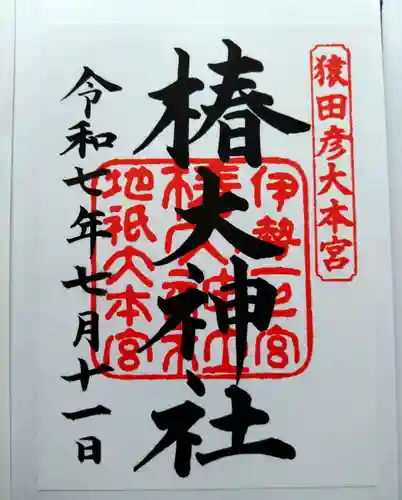 猿田彦大本宮
椿大神社
伊勢一之宮
椿大神社
地祇大本宮
令和七年七月十一日